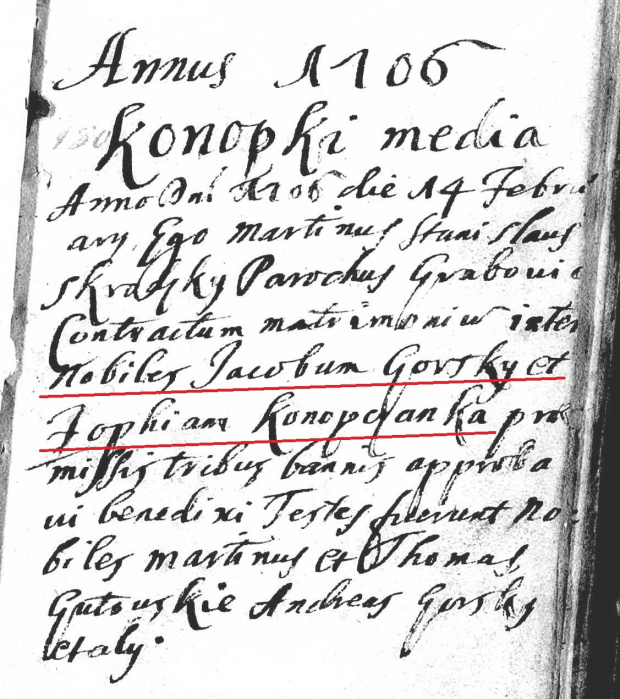 Annus 1706
Konopki media
Anno Dni 1706 die 14 Febru
ary Ego Martinus Stanislaus
Skrodsky Parochus Grabovi
Contractum matrimoniu inter
Nobiles Jacobum Gorsky et
Zophiam Konopczanka prae
missis tribus bannis approba
vi benedixi Testes fuerunt No
biles Martinus et Thomas
Gutouskie Andreas Gorsky
et aly.